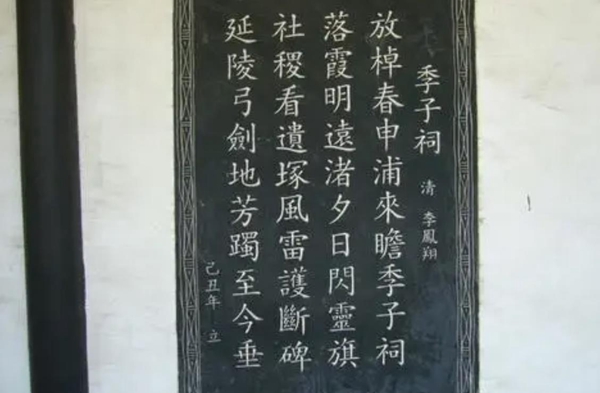 季子祠
清 李鳳翔
放棹春申浦來瞻季子祠
落霞明遠渚夕日閃靈旗
社稷看遺塚風雷護斷碑
延陵弓劍地芳躅至今垂
己丑年 立